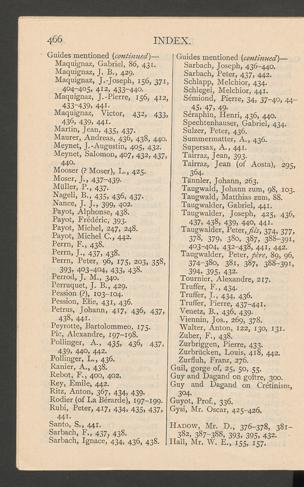 466
INDEX.
Guides mentioned (continued)—
Maquignaz, Gabriel, 86, 431.
Maquignaz, J. B., 429.
Maquignaz, J.-Joseph, 156, 371,
404-405, 412, 433-440.
Maquignaz, J.-Pierre, 156, 412,
433-439, 441.
Maquignaz, Victor, 432, 433,
436, 439, 441.
Martin, Jean, 435, 437.
Maurer, Andreas, 436, 438, 440.
Meynet, J.-Augustin, 405, 432.
Meynet, Salomon, 407, 432, 437,
440.
Mooser (? Moser), L., 425.
Moser, J., 437-439.
Müller, P., 437.
Nageli, B., 435, 436, 437.
Nance, J. J., 399, 402.
Payot, Alphonse, 438.
Payot, Frédéric, 393.
Payot, Michel, 247, 248.
Payot, Michel C., 442.
Perrn, F., 438.
Perrn, J., 437, 438.
Perrn, Peter, 96, 175, 203, 358,
393, 403-404, 433, 438.
Perrod, J. M., 340.
Perruquet, J. B., 429.
Pession (?), 103-104.
Pession, Elie, 431, 436.
Petrus, Johann, 417, 436, 437,
438, 441.
Peyrotte, Bartolommeo, 175.
Pic, Alexandre, 197-198.
Pollinger, A., 435, 436, 437,
439, 440, 442.
Pollinger, L., 436.
Ranier, A., 438.
Rebot, F., 400, 402.
Rey, Emile, 442.
Ritz, Anton, 367, 434, 439.
Rodier (of La Bérarde), 197-199.
Rubi, Peter, 417, 434, 435, 437,
441.
Santo, S., 441.
Sarbach, F., 437, 438.
Sarbach, Ignace, 434, 436, 438.
Guides mentioned (continued)—
Sarbach, Joseph, 436-440.
Sarbach, Peter, 437, 442.
Schlapp, Melchior, 434.
Schlegel, Melchior, 441.
Sémiond, Pierre, 34, 37-40, 44-
45, 47, 49.
Séraphin, Henri, 436, 440.
Spechtenhauser, Gabriel, 434.
Sulzer, Peter, 436.
Summermatter, A., 436.
Supersax, A., 441.
Tairraz, Jean, 393.
Tairraz, Jean (of Aosta), 295,
364.
Tännler, Johann, 263.
Taugwald, Johann zum, 98, 103.
Taugwald, Matthias zum, 88.
Taugwalder, Gabriel, 441.
Taugwalder, Joseph, 425, 436,
437, 438, 439, 440, 441.
Taugwalder, Peter, fils, 374, 377,
378, 379, 380, 387, 388-391,
403-404, 432-438, 441, 442.
Taugwalder, Peter, père, 89, 96,
374-380, 381, 387, 388-391,
394, 395, 432.
Tournier, Alexandre, 217.
Truffer, F., 434.
Truffer, J., 434, 436.
Truffer, Pierre, 437-441.
Venetz, B., 436, 439.
Viennin, Jos., 269, 378.
Walter, Anton, 122, 130, 131.
Zuber, F., 438.
Zurbriggen, Pierre, 433.
Zurbrücken, Louis, 418, 442.
Zurfluh, Franz, 276.
Guil, gorge of, 25, 50, 55.
Guy and Dagand on goître, 300.
Guy and Dagand on Crétinism,
304.
Guyot, Prof., 336.
Gysi, Mr. Oscar, 425-426.
HADOW, Mr. D., 376-378, 381-
382, 387-388, 393, 395, 432.
Hall, Mr. W. E., 155, 157.